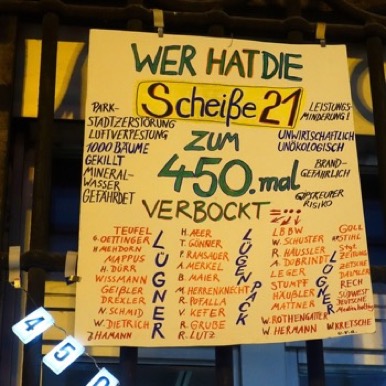 WER HAT DIE
Scheiße 21
PARK-
STADTZERSTÖRUNG
LUFTVERPESTUNG
1000 BÄUME
GEKILLT
MINERAL-
WASSER
GEFÄHRDET
ZUM
450.mal
VERBOCKT
LEISTUNGS-
MINDERUNG!
UNWIRTSCHAFTLICH
UNÖKOLOGISCH
BRAND-
GEFÄHRLICH
RISIKO
TEUFEL
OETTINGER
H MEHDORN
MAPPUS
H. DÜRR
WISSMANN
GEIßLER
DREXLER
N. SCHMID
W. DIETRICH
HAMANN
LÜGNER
H. AZER
T. GÖNNER
P. RAMSAUER
A. MERKEL
B. MAIER
M. HERRENKNECHT
R. POFALLA
V. KEFER
R. GRUBE
R. LUTZ
LÜGENPACK
LBBW
W. SCHUSTER
R. HÄUSSLER
A. DOBRINDT
LEGER
STUMPF
HÄUßLER
MATTNER
W. ROTHENGATTER
W. HERMANN
LÜGNER
GOLL
STIHL
Stgt.
ZEITUNG
ZETSCHE
DAIMLER
RECH
SÜDWEST
DEUTSCHE
W KRETSCHE
450